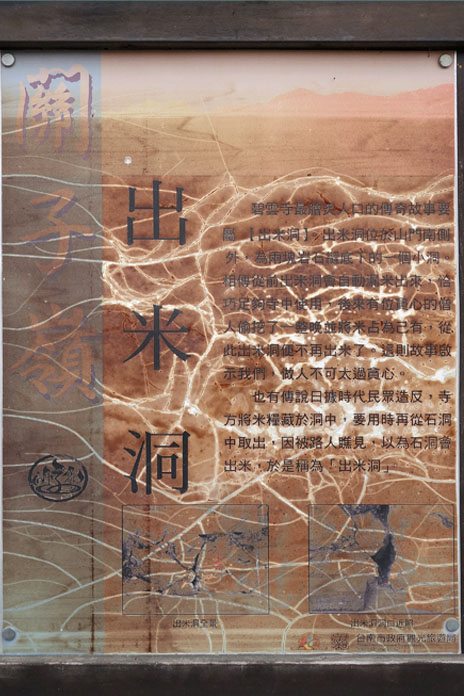 關子嶺
出米洞
碧雲寺最膾炙人口的傳奇故事要
屬【出米洞】。出米洞位於山門南側
外，為兩塊岩石
底下的一個小洞。
相傳從前出米洞會自動漏米出來，恰
巧足夠寺中使用，後來有位貪心的僧
人偷挖了一整晚並將米占為已有，從
此出米洞便不再出米了。這則故事啟
示我們，做人不可太過貪心。
也有傳說日據時代民眾造反，寺
方將米糧藏於洞中，要用時再從石洞
中取出，因被路人瞧見，以為石洞會
出米，於是稱為「出米洞」。
出米洞全景
出米洞洞口近照
台南市政府觀光旅遊局